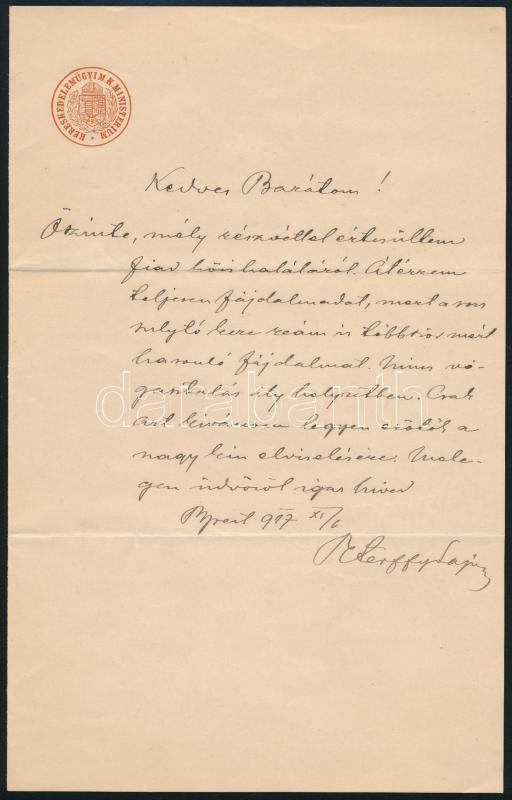 KERESKEDELEMÜGYI M.K. MINISTERIUM
Kedves Barátom!
Őszinte, mély részvéttel értesültem
fiad hősi haláláról. Átérzem
teljesen fájdalmadat, mert a sors
sujtó keze reám is többször mért
hasonló fájdalmat. Nincs vi-
gasztalás ily helyzetben. Csak
azt kivánom legyen erőtök a
nagy kin elviselésére. Mele-
gen üdvözöl igaz hived
Bpest 917 XI/6
Péterffy Lajos
darabanth